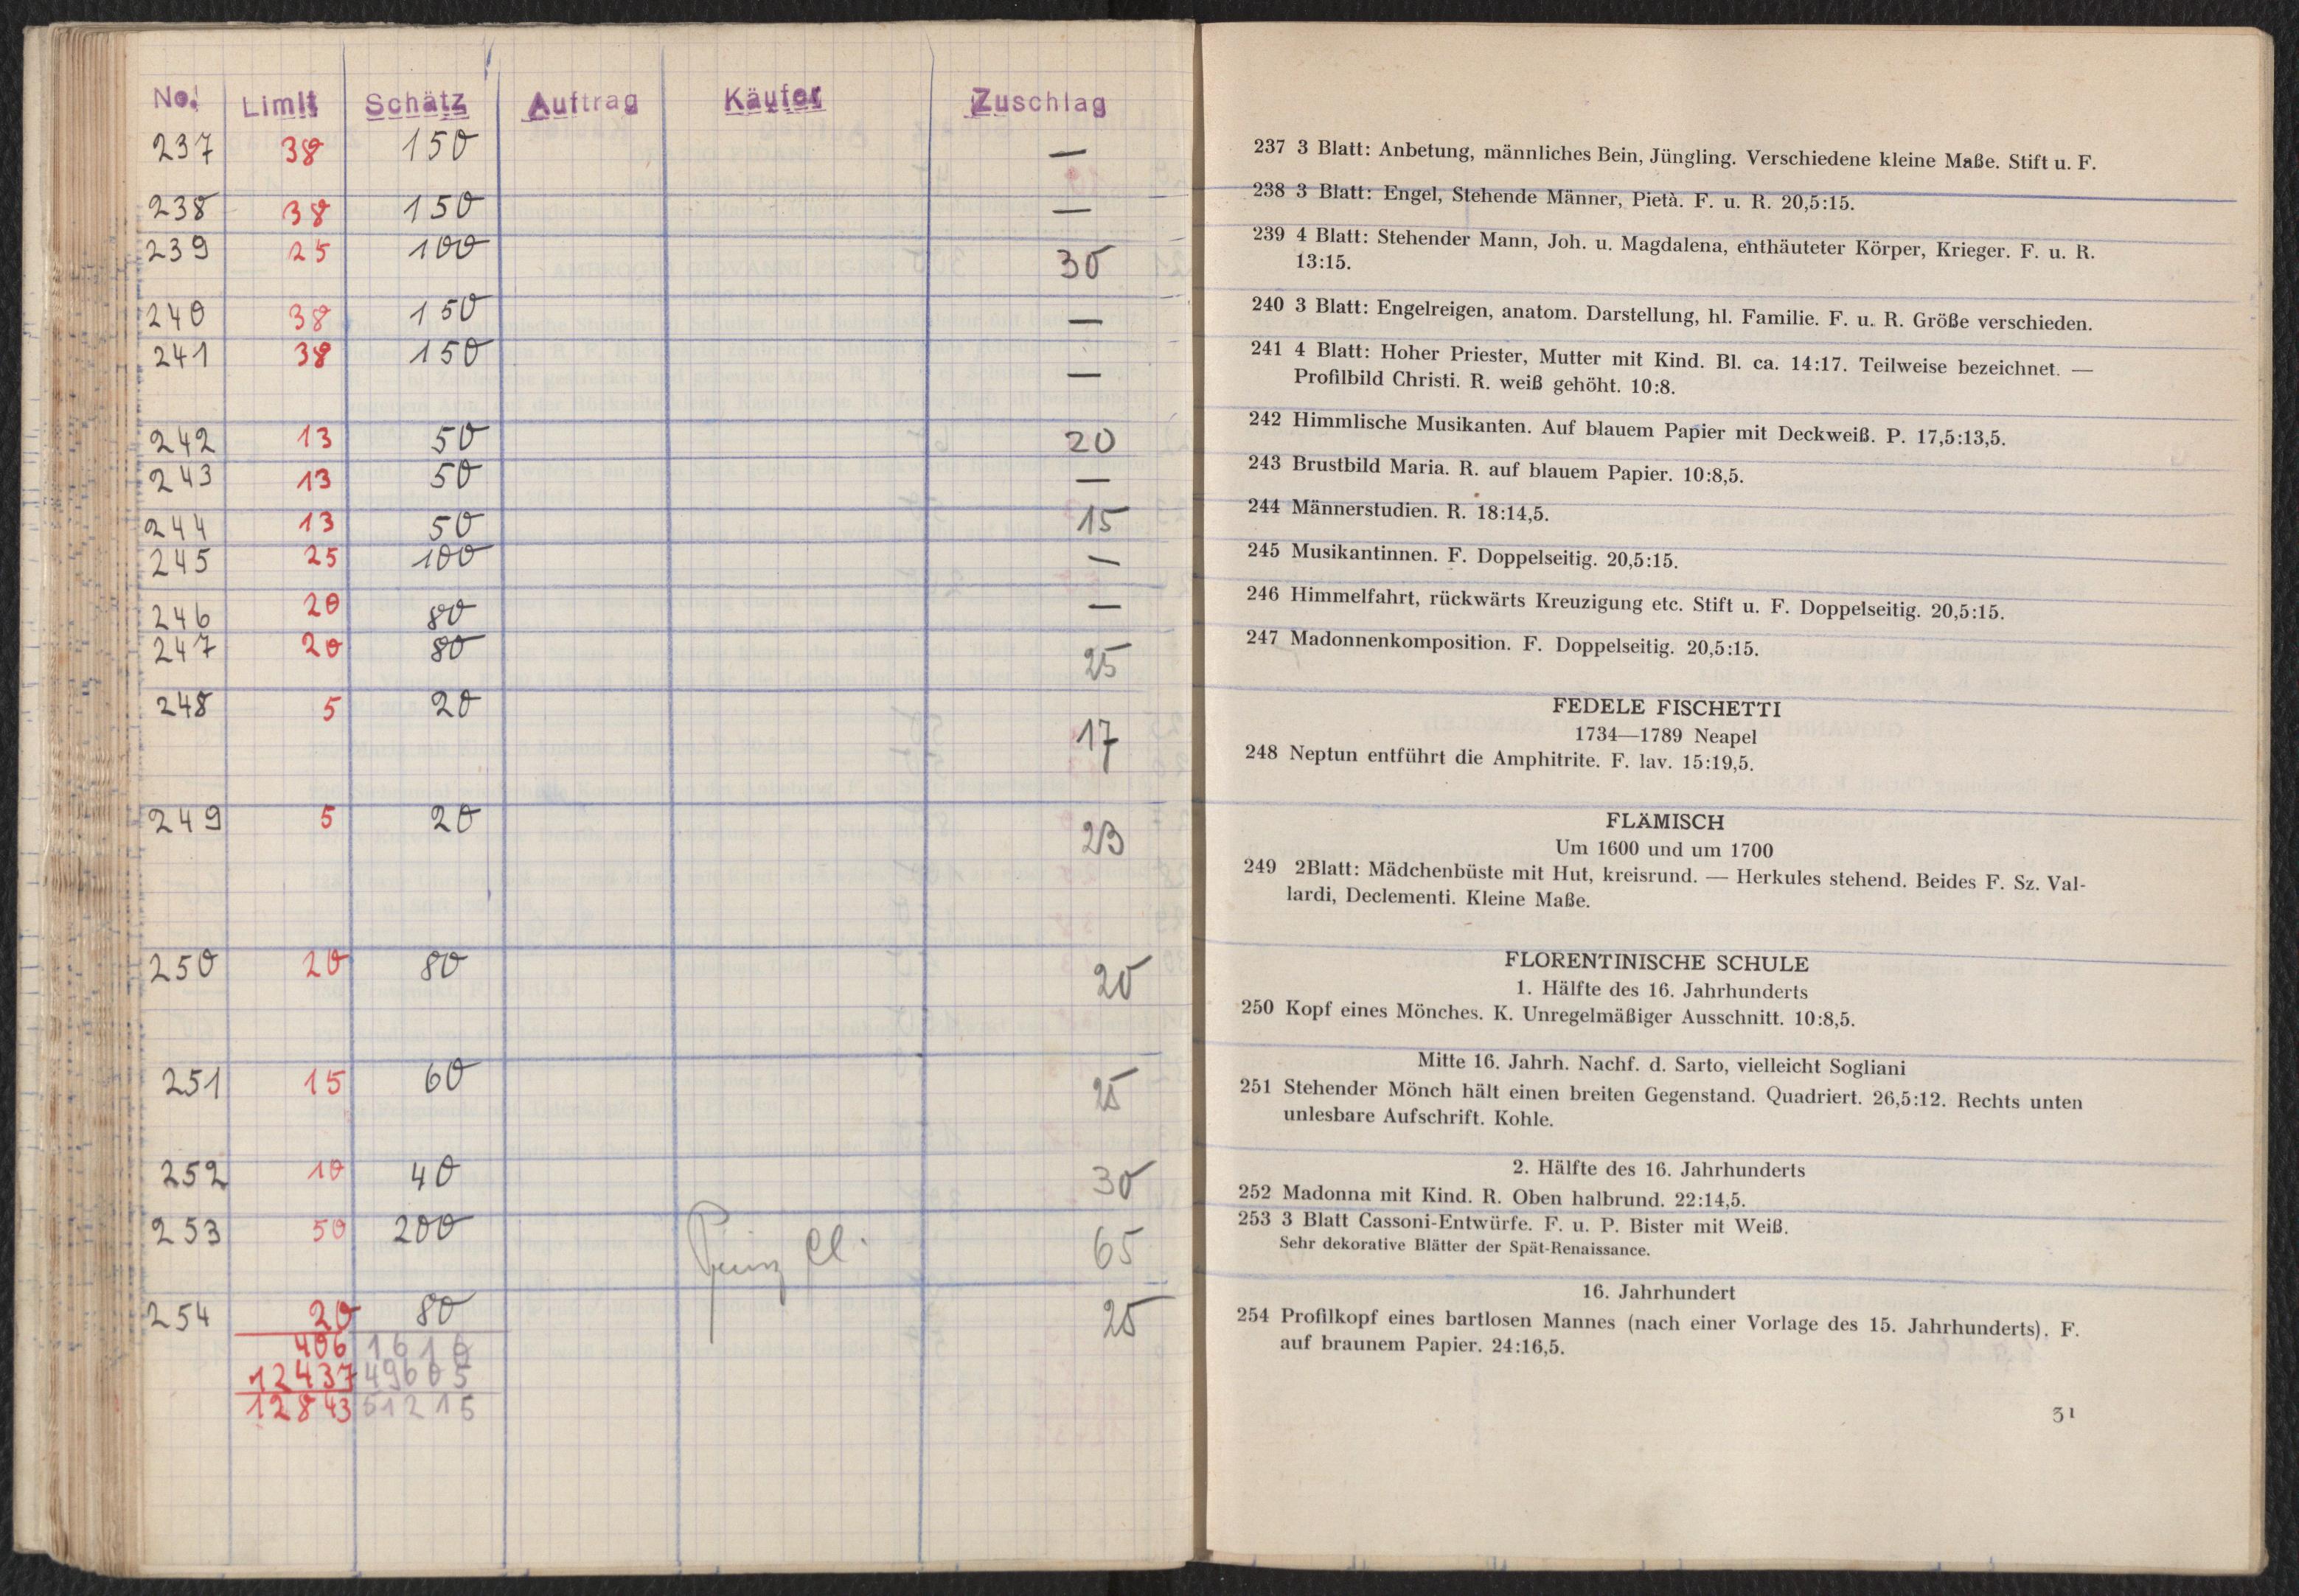 No. Limit Schätz Auftrag Käufer Zuschlag
237 38 150 —
238 38 150 —
239 25 100 30
240 38 150 —
241 38 150 —
242 13 50 20
243 13 50 —
244 13 50 15
245 25 100 —
246 20 80 —
247 20 80 25
248 5 20 17
249 5 20 23
250 20 80 20
251 15 60 25
252 10 40 30
253 50 200 65
254 20 80 25
406 1610
12437 49605
12843 51215
237 3 Blatt: Anbetung, männliches Bein, Jüngling. Verschiedene kleine Maße. Stift u. F.
238 3 Blatt: Engel, Stehende Männer, Pietà. F. u. R. 20,5:15.
239 4 Blatt: Stehender Mann, Joh. u. Magdalena, enthäuteter Körper, Krieger. F. u. R.
13:15.
240 3 Blatt: Engelreigen, anatom. Darstellung, hl. Familie. F. u. R. Größe verschieden.
241 4 Blatt: Hoher Priester, Mutter mit Kind. Bl. ca. 14:17. Teilweise bezeichnet. —
Profilbild Christi. R. weiß gehöht. 10:8.
242 Himmlische Musikanten. Auf blauem Papier mit Deckweiß. P. 17,5:13,5.
243 Brustbild Maria. R. auf blauem Papier. 10:8,5.
244 Männerstudien. R. 18:14,5.
245 Musikantinnen. F. Doppelseitig. 20,5:15.
246 Himmelfahrt, rückwärts Kreuzigung etc. Stift u. F. Doppelseitig. 20,5:15.
247 Madonnenkomposition. F. Doppelseitig. 20,5:15.
FEDELE FISCHETTI
1734—1789 Neapel
248 Neptun entführt die Amphitrite. F. lav. 15:19,5.
FLÄMISCH
Um 1600 und um 1700
249 2Blatt: Mädchenbüste mit Hut, kreisrund. — Herkules stehend. Beides F. Sz. Val-
lardi, Declementi. Kleine Maße.
FLORENTINISCHE SCHULE
1. Hälfte des 16. Jahrhunderts
250 Kopf eines Mönches. K. Unregelmäßiger Ausschnitt. 10:8,5.
Mitte 16. Jahrh. Nachf. d. Sarto, vielleicht Sogliani
251 Stehender Mönch hält einen breiten Gegenstand. Quadriert. 26,5:12. Rechts unten
unlesbare Aufschrift. Kohle.
2. Hälfte des 16. Jahrhunderts
252 Madonna mit Kind. R. Oben halbrund. 22:14,5.
253 3 Blatt Cassoni-Entwürfe. F. u. P. Bister mit Weiß.
Sehr dekorative Blätter der Spät-Renaissance.
16. Jahrhundert
254 Profilkopf eines bartlosen Mannes (nach einer Vorlage des 15. Jahrhunderts). F.
auf braunem Papier. 24:16,5.
31